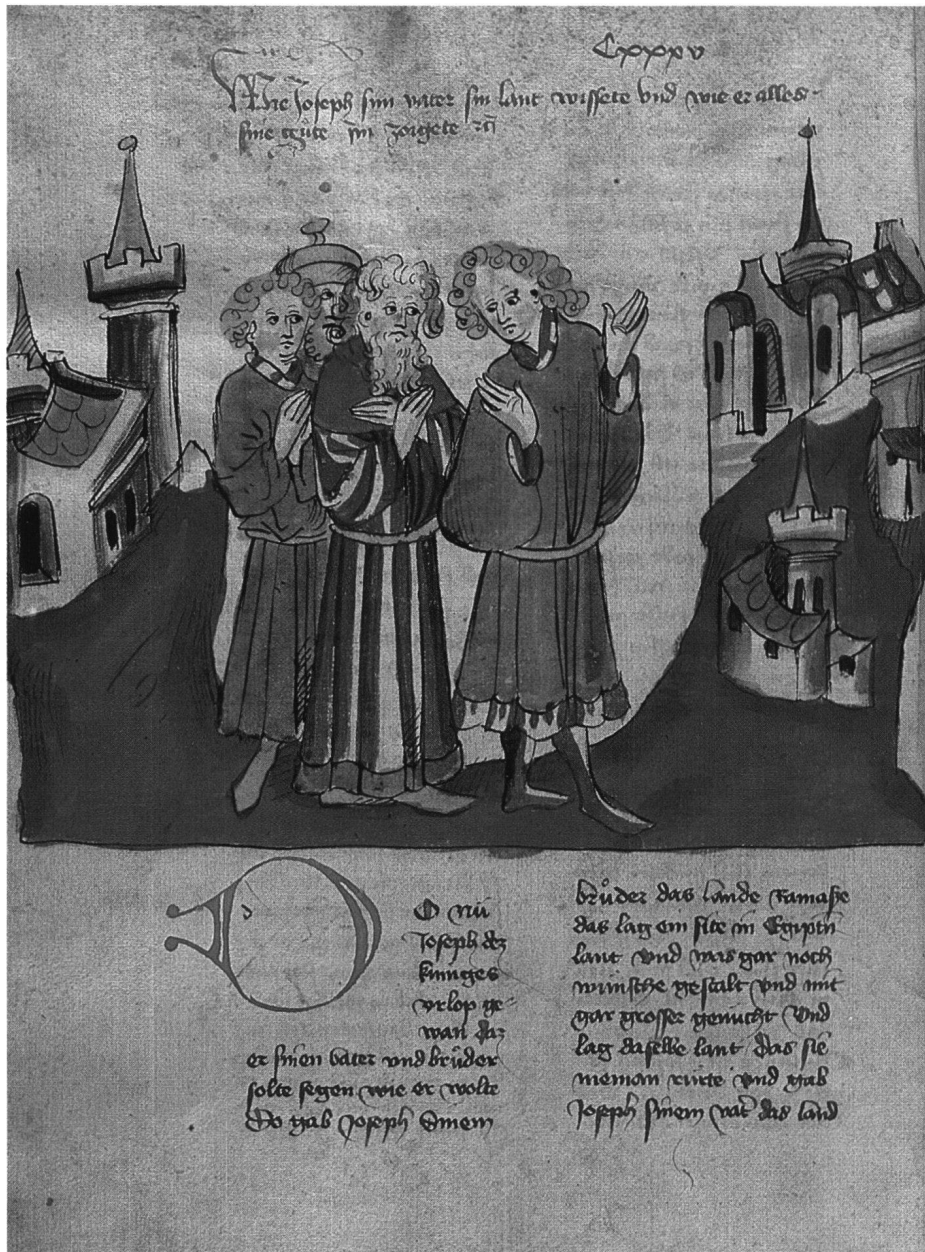 Cxxxv
Wie Joseph sim vater sin lant wissete vnd wie er alles
sine zorgete
O nü
Joseph dez
kuniges
vrlop ge-
wan daz
er sinen vater vnd brůder
solte segen wie er wolte
Do gab Joseph Sinem
brůder das lande Ramasse
das lag ein site in Egiptn
lant vnd was gar noch
wunsche gestalt vnd mit
gar grosser genucht Vnd
lag daselbe lant das sie
nieman rurte vnd gab
Joseph sinem vat̓ das land